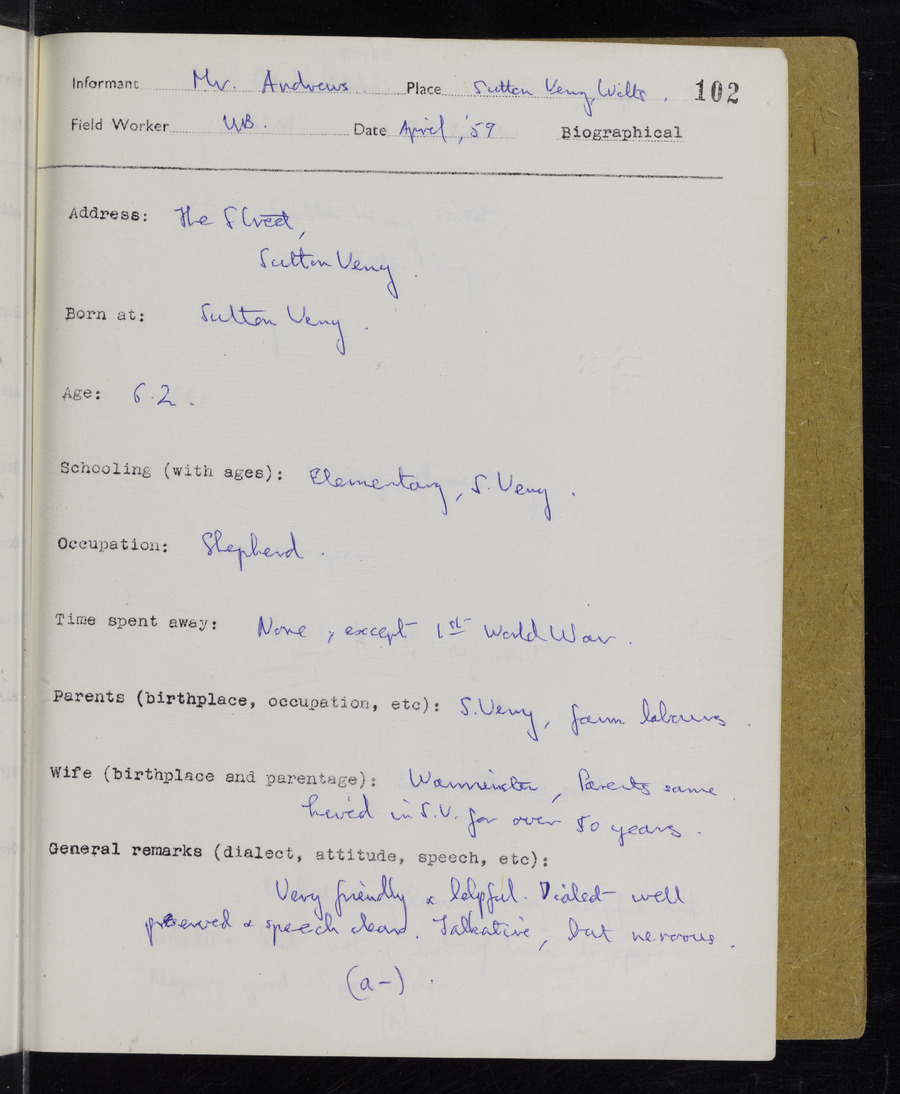 Informant Mr. Andrews. Place Sutton Veny, Wilts. 102
Field Worker WB. Date April, '59 Biographical
Address: The Street,
Sutton Veny.
Born at: Sutton Veny.
Age: 62.
Schooling (with ages): Elementary, S. Veny.
Occupation: Shepherd.
Time spent away: None, except 1st World War.
Parents (birthplace, occupation, etc): S. Veny, farm labourers.
Wife (birthplace and parentage): Warminster, Parents same.
lived in S.V. for over 50 years.
General remarks (dialect, attitude, speech, etc):
Very friendly & helpful. Dialect well
preserved & speech clear. Talkative, but nervous.
(a-).